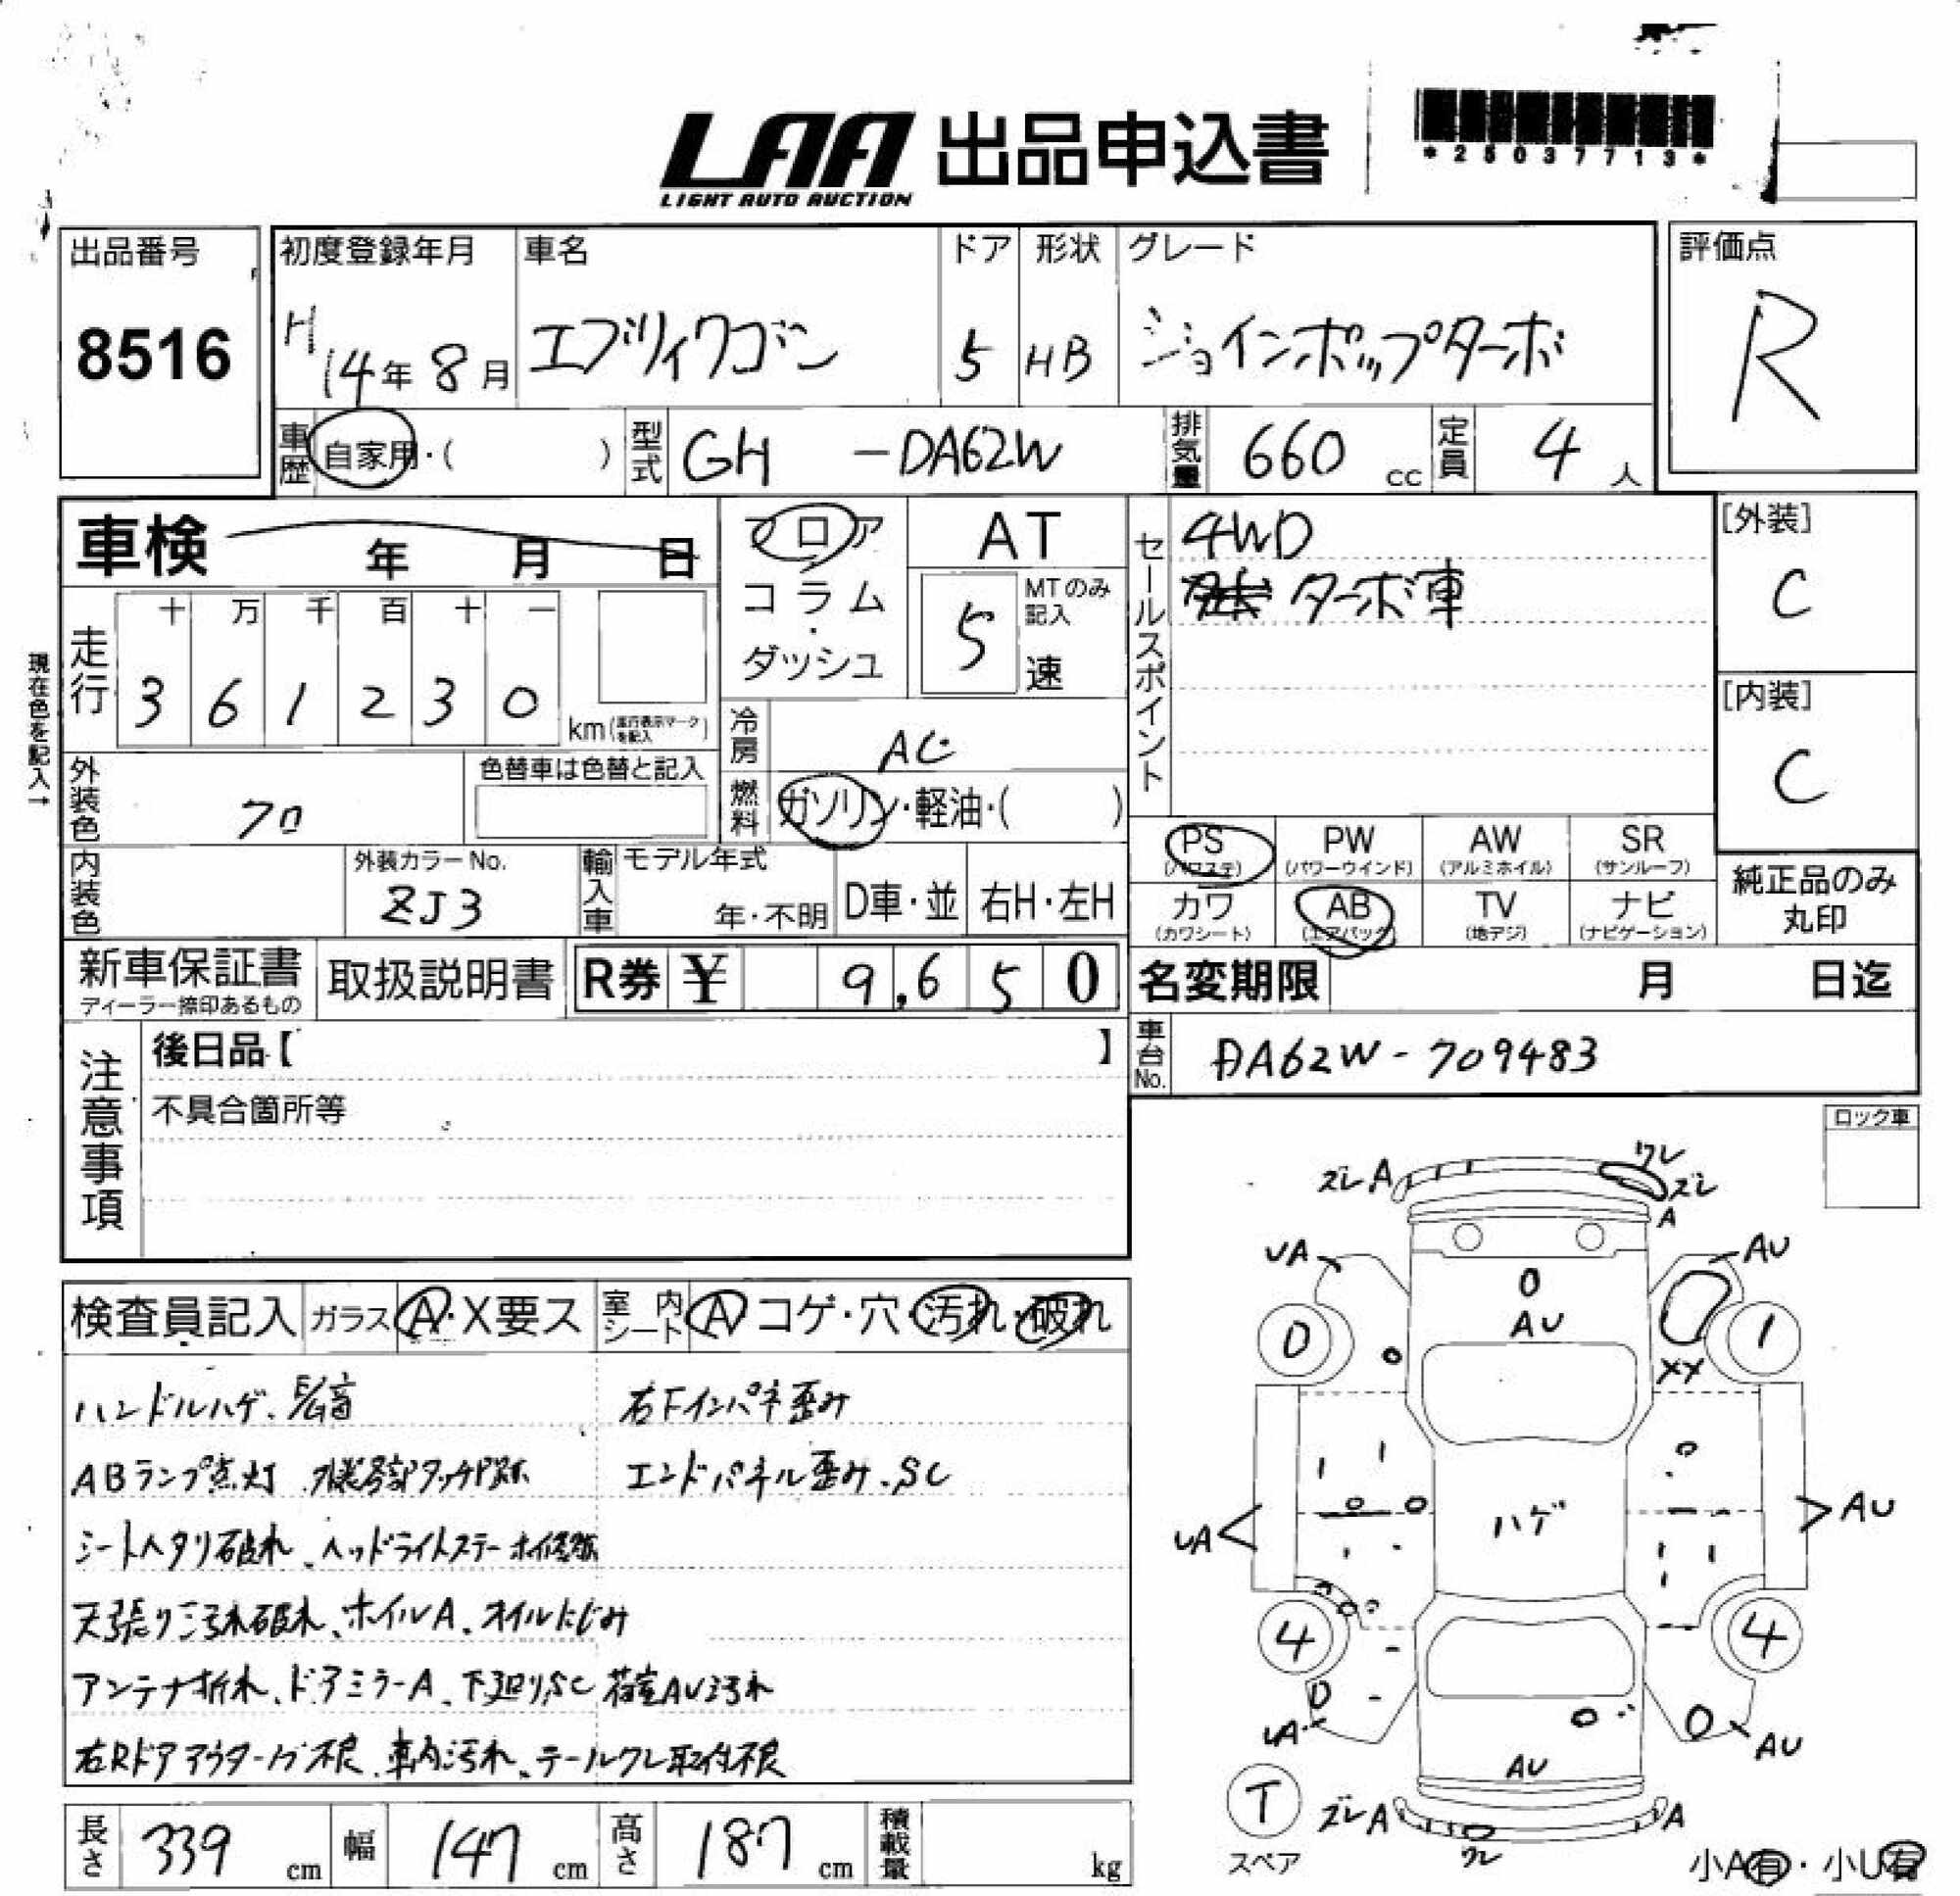 LAA 出品申込書
LIGHT AUTO AUCTION
*25037713*
出品番号
8516
初度登録年月
H14年8月
車名
エブリィワゴン
ドア
5
形状
HB
グレード
ジョインポップターボ
評価点
R
車歴 自家用・( )
型式 GH -DA62W
排気量 660 cc
定員 4 人
車検 年 月 日
フロア
コラム・
ダッシュ
AT
MTのみ記入
5 速
セールスポイント
4WD
ターボ車
[外装]
C
[内装]
C
現在色を記入→
走行
十 万 千 百 十 一
3 6 1 2 3 0 km(走行表示マークを記入)
冷房 AC
燃料 ガソリン・軽油・( )
外装色 クロ
色替車は色替と記入
内装色
外装カラーNo.
ZJ3
輸入車
モデル年式
年・不明
D車・並
右H・左H
PS (パワステ)
PW (パワーウインド)
AW (アルミホイル)
SR (サンルーフ)
カワ (カワシート)
AB (エアバック)
TV (地デジ)
ナビ (ナビゲーション)
純正品のみ
丸印
新車保証書
ディーラー捺印あるもの
取扱説明書
R券 ¥ 9,650
名変期限 月 日迄
車台No. DA62W-709483
注意事項
後日品【 】
不具合箇所等
ロック車
検査員記入 ガラス A・X要ス 室内シート A コゲ・穴・汚れ・破れ
ハンドルハゲ、
右下インパネ歪み
ABランプ点灯
エンドパネル歪み、SC
シートヘタリ破れ、ヘッドライトステー
天張り汚れ破れ、ホイルA、オイルにじみ
アンテナ折れ、ドアミラーA、下廻りSC 荷室AU汚れ
右Rドアアウター 不良、車内汚れ、テールワレ取付不良
長さ 339 cm
幅 147 cm
高さ 187 cm
積載量 kg
ズレA
ワレ
ズレ
A
UA
AU
0
AU
1
XX
UA
ハゲ
AU
4
4
UA
AU
AU
T
スペア
ズレA
ワレ
A
小A有・小U有